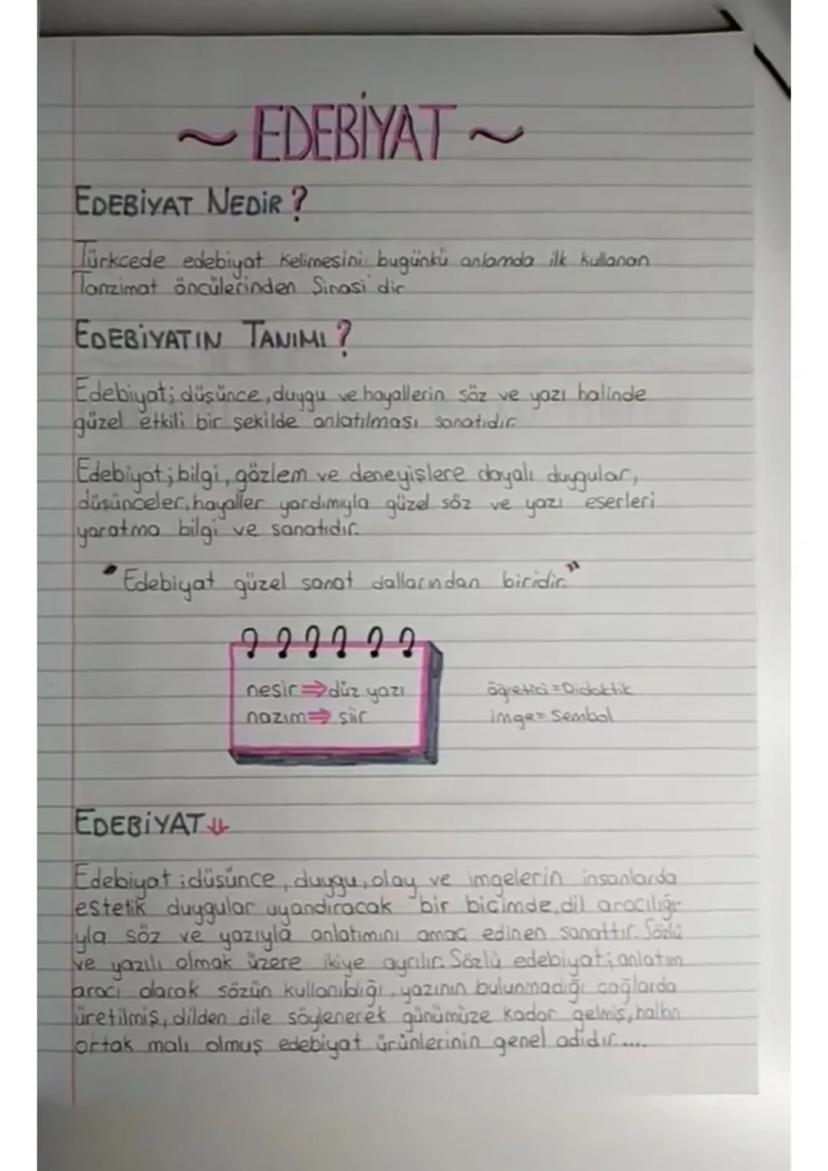 ~ EDEBİYAT ~
EDEBİYAT NEDİR ?
Türkcede edebiyat kelimesini bugünkü anlamda ilk kullanan
Tanzimat öncülerinden Şinasi'dir
EDEBİYATIN TANIMI ?
Edebiyat; düşünce, duygu ve hayallerin söz ve yazı halinde
güzel etkili bir şekilde anlatılması sanatıdır
Edebiyat; bilgi, gözlem ve deneyişlere dayalı duygular,
düşünceler, hayaller yardımıyla güzel söz ve yazı eserleri
yaratma bilgi ve sanatıdır.
"Edebiyat güzel sanat dallarından biridir."
nesir ⇒ düz yazı
nazım ⇒ şiir
öğretici = Didaktik
imge = Sembol
EDEBİYAT ⇓
Edebiyat; düşünce, duygu, olay ve imgelerin insanlarda
estetik duygular uyandıracak bir biçimde, dil aracılığı-
yla söz ve yazıyla anlatımını amaç edinen sanattır. Sözlü
ve yazılı olmak üzere ikiye ayrılır. Sözlü edebiyat; anlatım
aracı olarak sözün kullanıldığı, yazının bulunmadığı çağlarda
üretilmiş, dilden dile söylenerek günümüze kadar gelmiş, halkın
ortak malı olmuş edebiyat ürünlerinin genel adıdır....